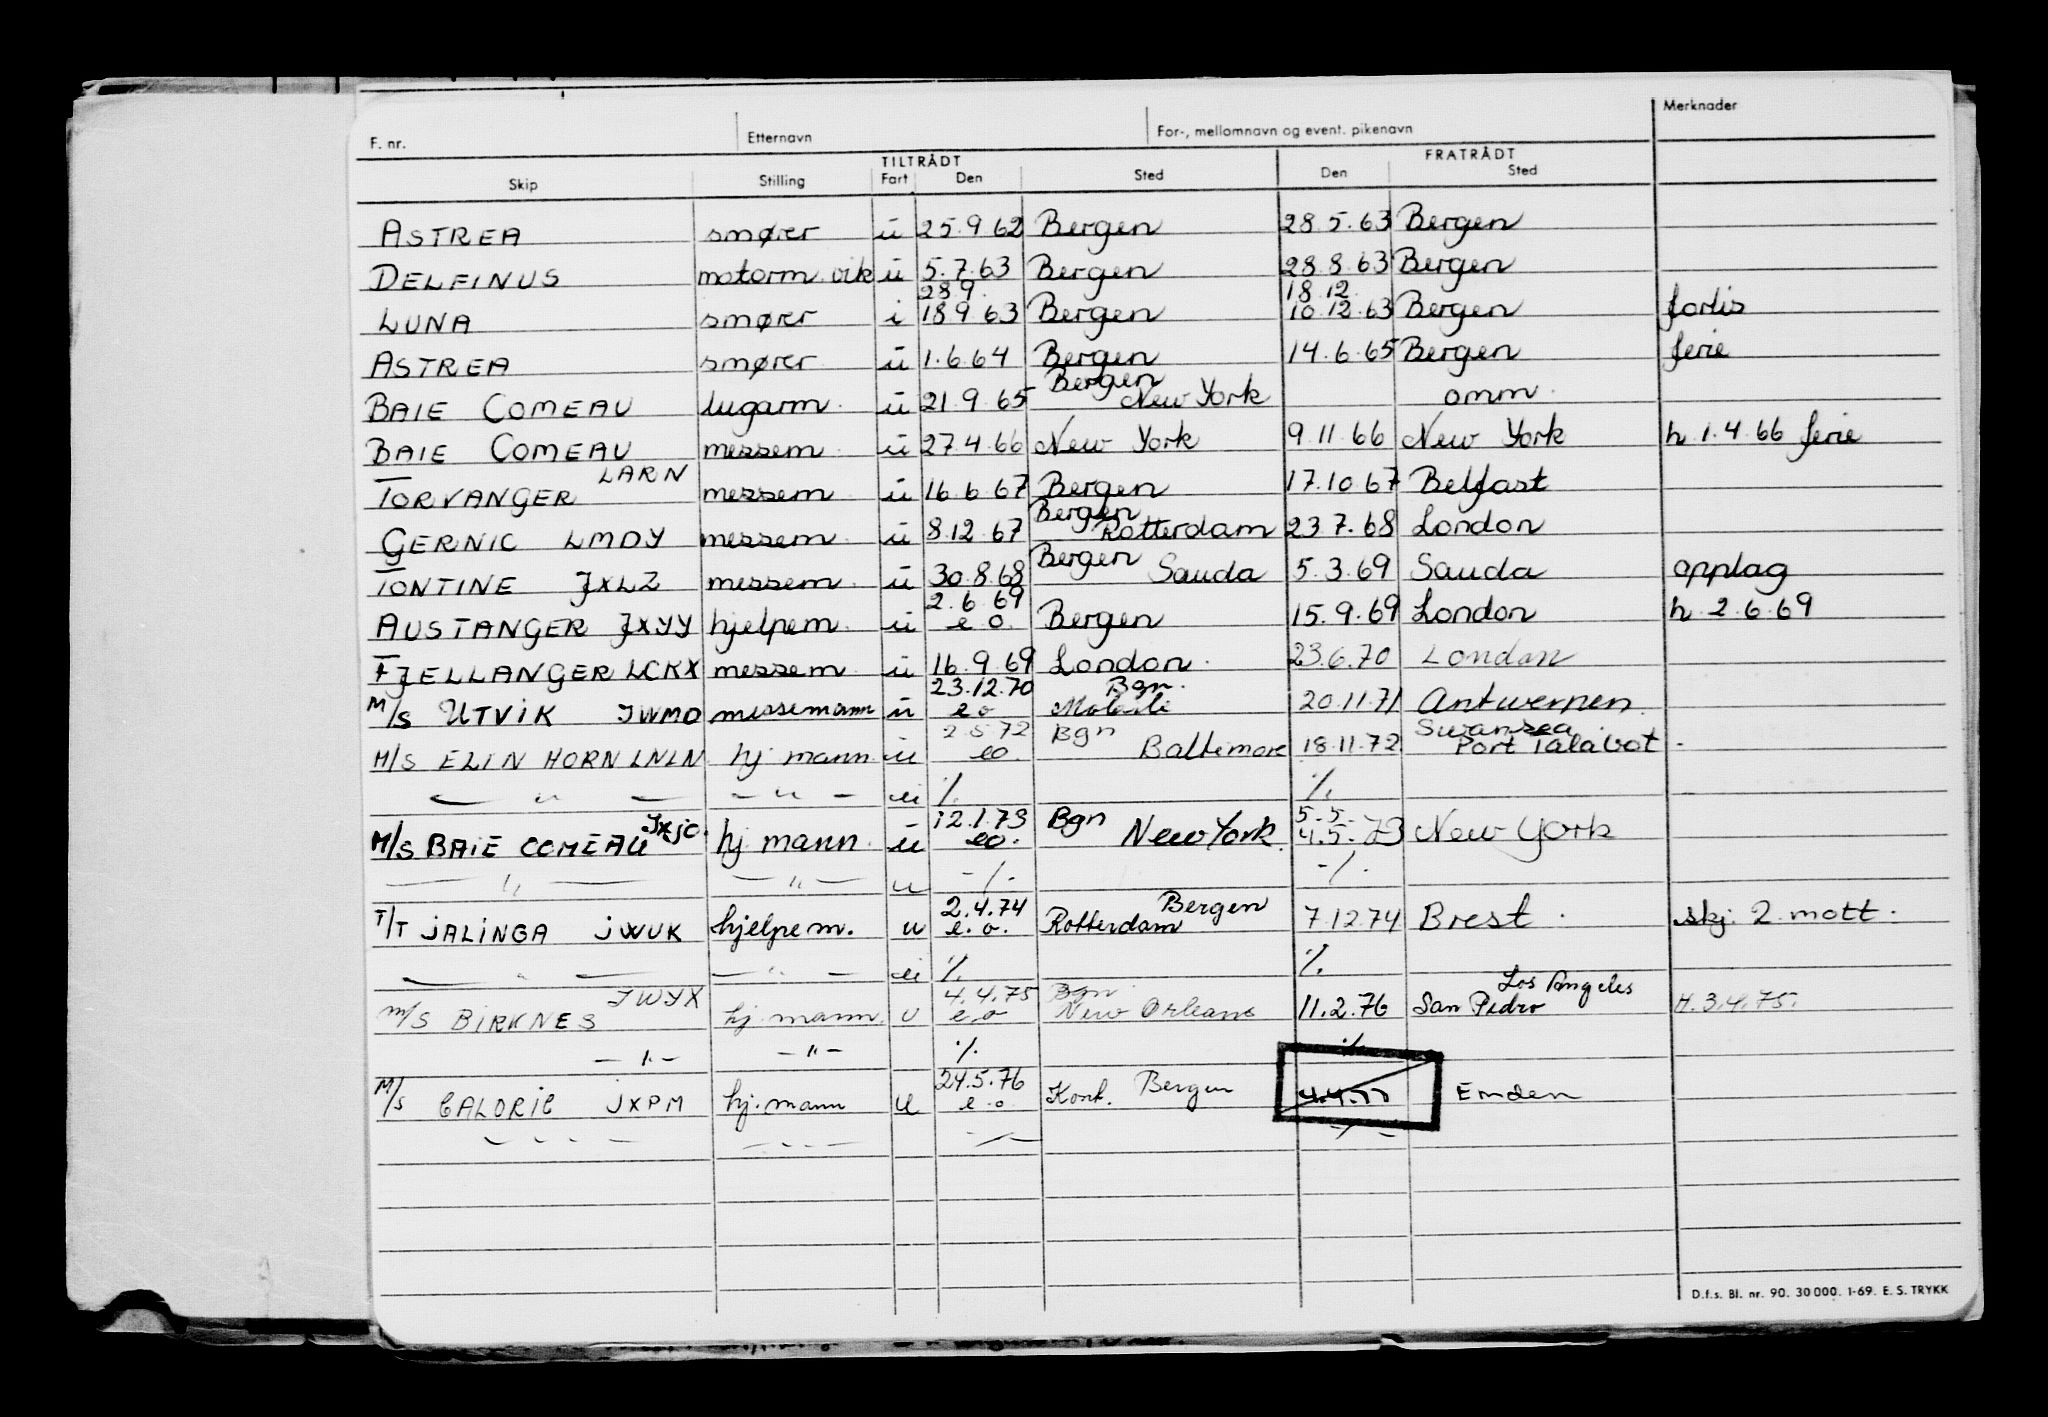 F. nr. Etternavn For-, mellomnavn og event. pikenavn Merknader
TILTRÅDT FRATRÅDT
Skip Stilling Fart Den Sted Den Sted
ASTREA smører u 25.9.62 Bergen 28.5.63 Bergen
DELFINUS motorm.vik u 5.7.63 Bergen 28.8.63 Bergen
28.9. 18.12.
LUNA smører i 18.9.63 Bergen 10.12.63 Bergen fortis
ASTREA smører u 1.6.64 Bergen 14.6.65 Bergen ferie
Bergen
BAIE COMEAU lugarm. u 21.9.65 New York omm.
BAIE COMEAU messem u 27.4.66 New York 9.11.66 New York h. 1.4.66 ferie
LARN
TORVANGER messem u 16.6.67 Bergen 17.10.67 Belfast
Bergen
GERNIC LMDY messem. u 8.12.67 Rotterdam 23.7.68 London
Bergen
TONTINE JXLZ messem. u 30.8.68 Sauda 5.3.69 Sauda opplag
2.6.69
AUSTANGER JXYY hjelpem. u e.o. Bergen 15.9.69 London h. 2.6.69
FJELLANGER LCKX messem. u 16.9.69 London. 23.6.70 London
23.12.70 Bgn.
M/S UTVIK JWMO messemann u e o Mobile 20.11.71 Antwerpen.
2.5.72 Bgn Swansea
M/S ELIN HORN LNLN hj.mann u eo. Baltimore 18.11.72 Port Talabot.
— " — — " — u ./. ./.
JXJC. 12.1.73 Bgn 5.5.
M/S BAIE COMEAU hj.mann. u eo. New York. 4.5.73 New York
— " — — " — u -/- -/.
2.4.74 Bergen
T/T JALINGA JWUK hjelpem. u e.o. Rotterdam 7.12.74 Brest. skj. 2 mott.
— " — — " — u ./. ./.
JWYX 4.4.75 Bgn Los Angeles
M/S BIRKNES hj.mann. u e.o New Orleans 11.2.76 San Pedro H.3.4.75.
— " — — " — ./. ./.
24.5.76
M/S CALORIC JXPM hj.mann u e.o. Kont. Bergen 4.4.77 Emden
— " — — " — -/- -/-
D.f.s. Bl. nr. 90. 30 000. 1-69. E. S. TRYKK